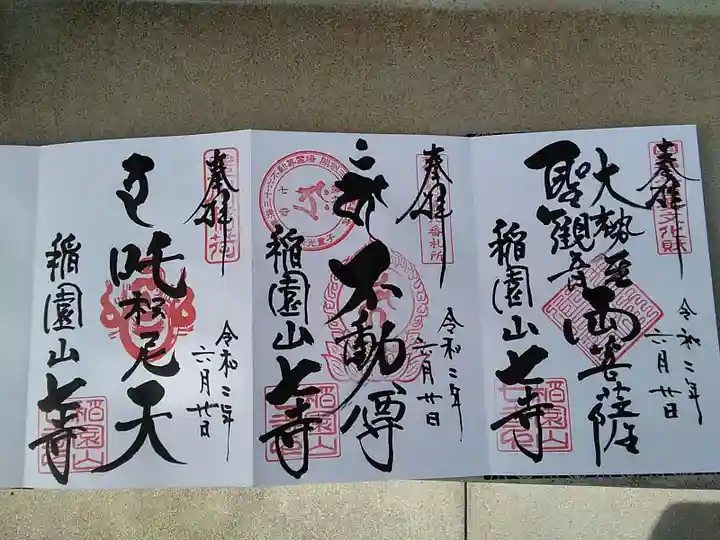 奉拝
令和二年
六月廿日
大勢至
聖観音
両菩薩
稲園山七寺
稲園山
奉拝
番札所
令和二年
六月廿日
不動尊
稲園山七寺
稲園山
奉拝
令和二年
六月廿日
吒枳尼天
稲園山七寺
稲園山